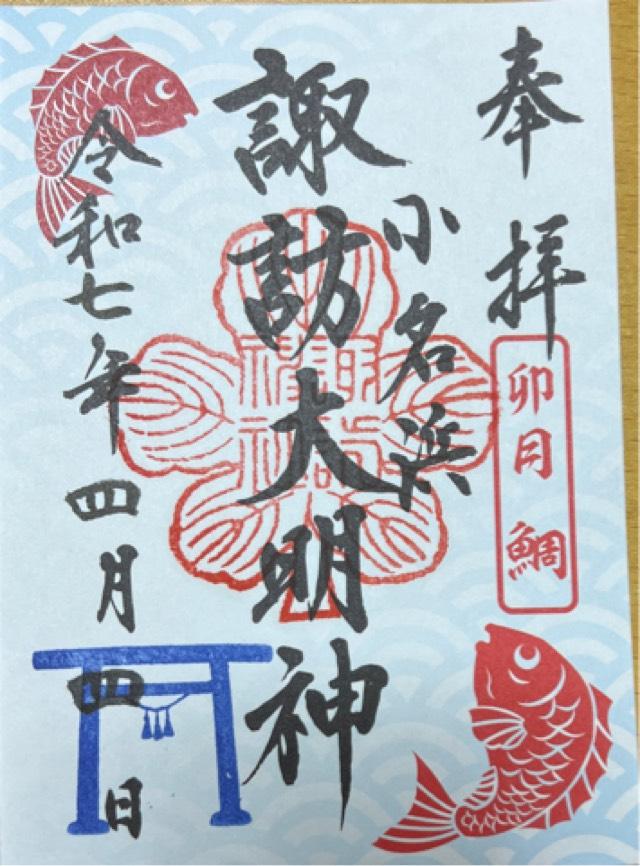 奉拝
卯月 鯛
小名浜
諏訪大明神
令和七年四月四日